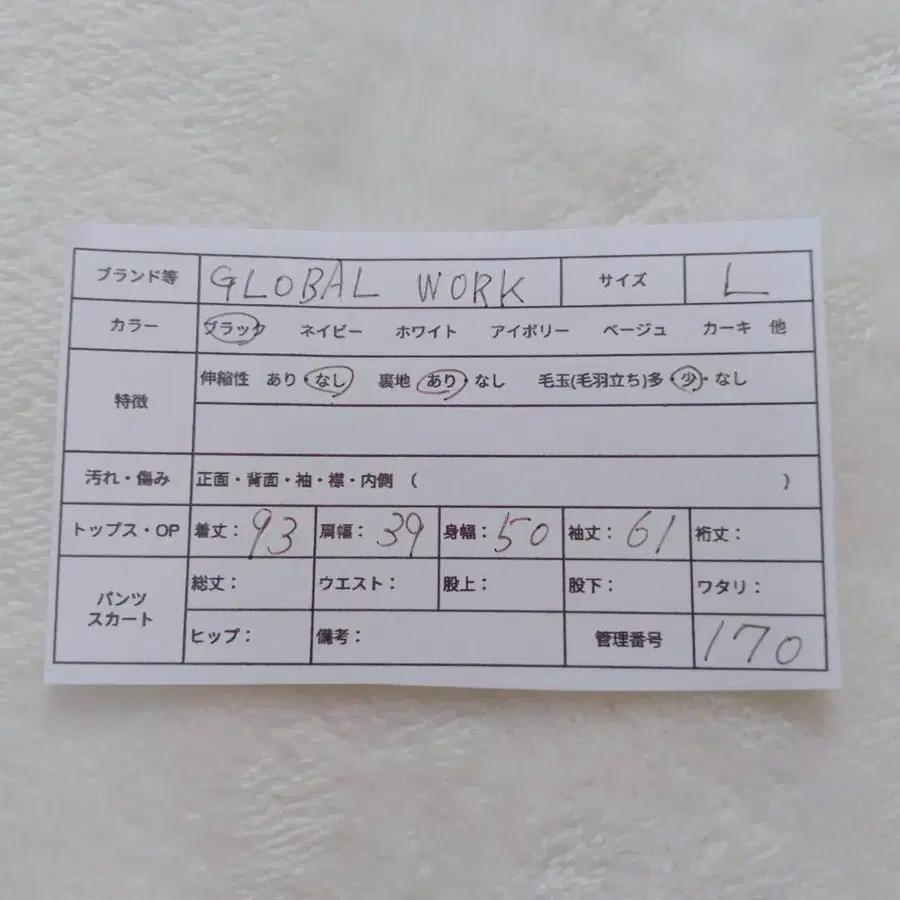 ブランド等 GLOBAL WORK サイズ L
カラー ブラック ネイビー ホワイト アイボリー ベージュ カーキ 他
特徴 伸縮性 あり・なし 裏地 あり・なし 毛玉(毛羽立ち)多・少・なし
汚れ・傷み 正面・背面・袖・襟・内側 ( )
トップス・OP 着丈: 93 肩幅: 39 身幅: 50 袖丈: 61 裄丈:
パンツ スカート 総丈: ウエスト: 股上: 股下: ワタリ:
ヒップ: 備考: 管理番号 170